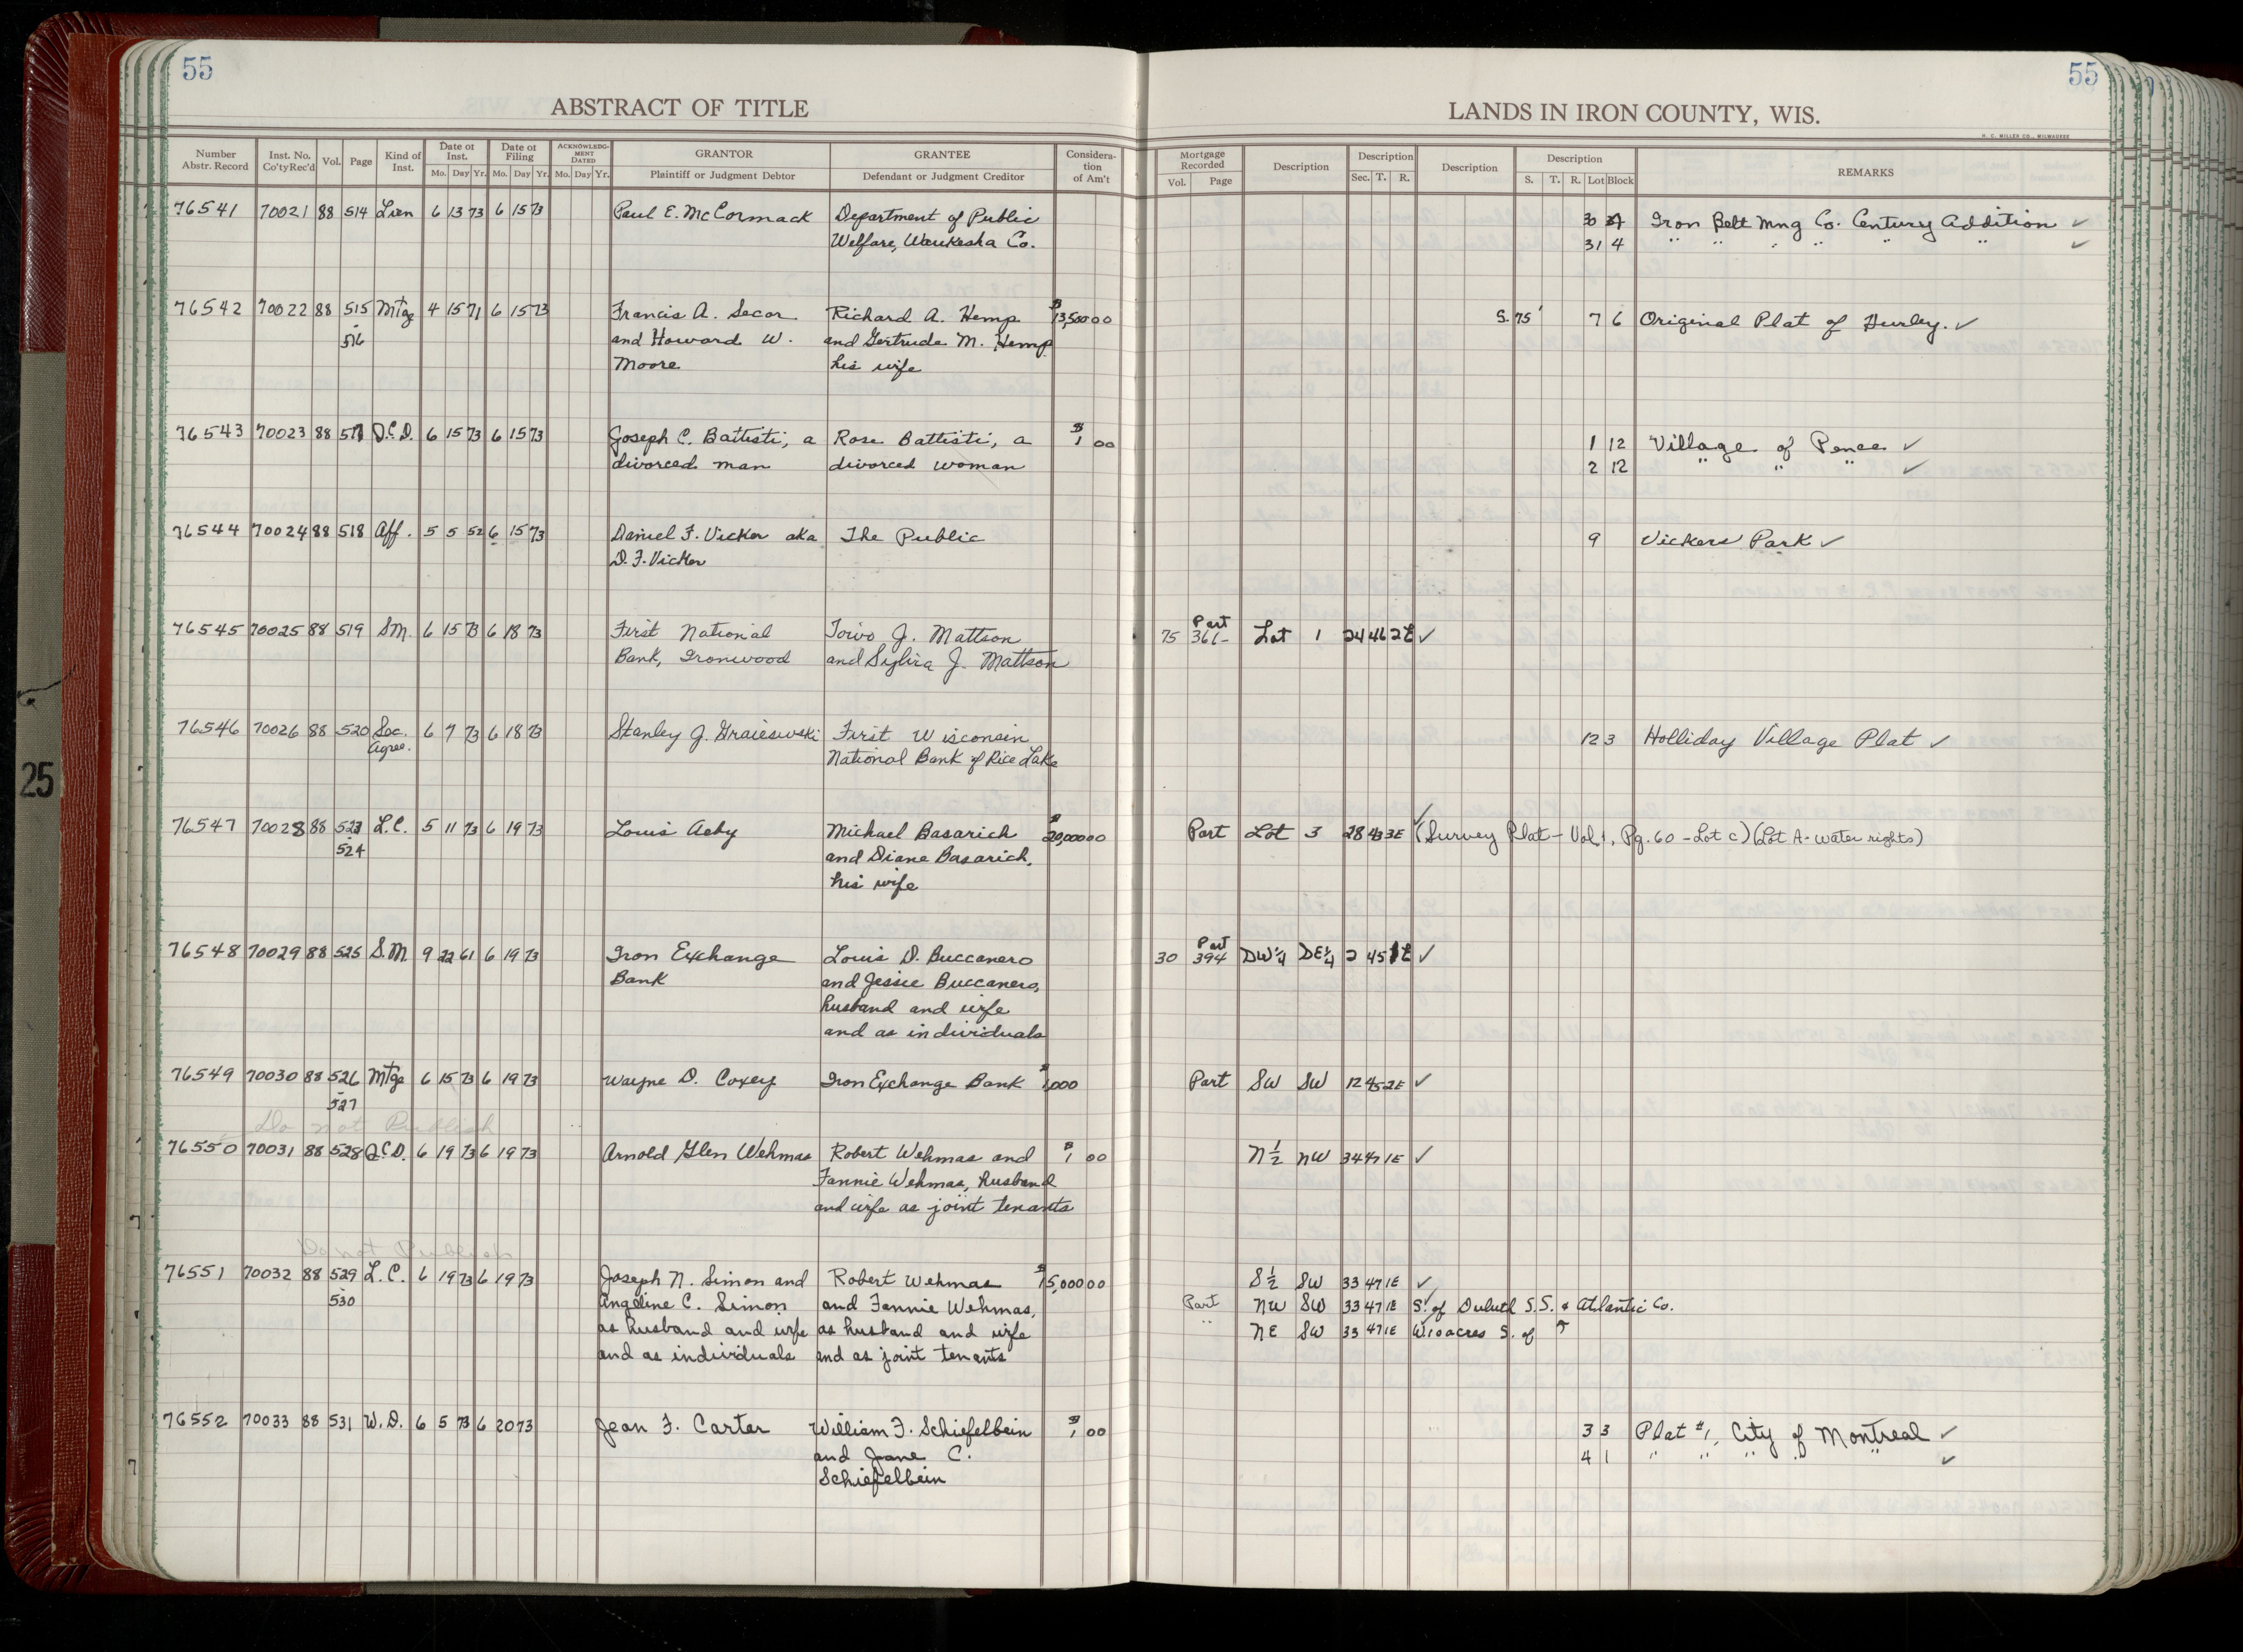 55
55
ABSTRACT OF TITLE
LANDS IN IRON COUNTY, WIS.
H. C. MILLER CO., MILWAUKEE
Number Abstr. Record | Inst. No. Co'ty Rec'd | Vol. | Page | Kind of Inst. | Date of Inst. Mo. Day Yr. | Date of Filing Mo. Day Yr. | ACKNOWLEDGMENT DATED Mo. Day Yr. | GRANTOR Plaintiff or Judgment Debtor | GRANTEE Defendant or Judgment Creditor | Consideration of Am't | Mortgage Recorded Vol. Page | Description | Description Sec. T. R. | Description | Description S. T. R. Lot Block | REMARKS
76541 70021 88 514 Lien 6 13 73 6 15 73 Paul E. McCormack Department of Public 30 4 Iron Belt Mng Co. Century Addition ✓
Welfare, Waukesha Co. 31 4 " " " " " " ✓
76542 70022 88 515 Mtge 4 15 71 6 15 73 Francis A. Secor Richard A. Hemp $13,500 00 S. 75' 7 6 Original Plat of Hurley. ✓
- 516 and Howard W. and Gertrude M. Hemp
Moore his wife
76543 70023 88 517 Q.C.D. 6 15 73 6 15 73 Joseph C. Battisti, a Rose Battisti, a $1 00 1 12 Village of Pence ✓
divorced man divorced woman 2 12 " " " ✓
76544 70024 88 518 Aff. 5 5 52 6 15 73 Daniel F. Vicker aka The Public 9 Vickers Park ✓
D. F. Vicker
76545 70025 88 519 SM. 6 15 73 6 18 73 First National Toivo J. Mattson 75 Part 361- Lot 1 24 46 2E ✓
Bank, Ironwood and Sylvia J. Mattson
76546 70026 88 520 Sec. 6 7 73 6 18 73 Stanley J. Graiesewski First Wisconsin 12 3 Holliday Village Plat ✓
Agree. National Bank of Rice Lake
76547 70028 88 523 L.C. 5 11 73 6 19 73 Louis Aeby Michael Basarich $20,000 00 Part Lot 3 28 43 3E ✓ (Survey Plat - Vol. 1, Pg. 60 - Lot C) (Lot A - water rights)
- 524 and Diane Basarich,
his wife
76548 70029 88 525 S.M. 9 22 61 6 19 73 Iron Exchange Louis D. Buccanero 30 Part 394 SW¼ SE¼ 2 45 1E ✓
Bank and Jessie Buccanero,
husband and wife
and as individuals
76549 70030 88 526 Mtge 6 15 73 6 19 73 Wayne D. Coxey Iron Exchange Bank Part SW SW 12 45 2E ✓
- 527
Do not Publish
76550 70031 88 528 Q.C.D. 6 19 73 6 19 73 Arnold Glen Wehmas Robert Wehmas and $1 00 N½ NW 34 47 1E ✓
Fannie Wehmas, husband
and wife as joint tenants
Do not Publish
76551 70032 88 529 L.C. 6 19 73 6 19 73 Joseph N. Simon and Robert Wehmas $15,000 00 S½ SW 33 47 1E ✓
- 530 Angeline C. Simon and Fannie Wehmas, Part NW SW 33 47 1E S. of Duluth S.S. & Atlantic Co.
as husband and wife as husband and wife " NE SW 33 47 1E W10acres S. of ↑
and as individuals and as joint tenants
76552 70033 88 531 W.D. 6 5 73 6 20 73 Jean F. Carter William F. Schiefelbein $1 00 3 3 Plat #1, City of Montreal ✓
and Jane C. 4 1 " " " " " ✓
Schiefelbein
25